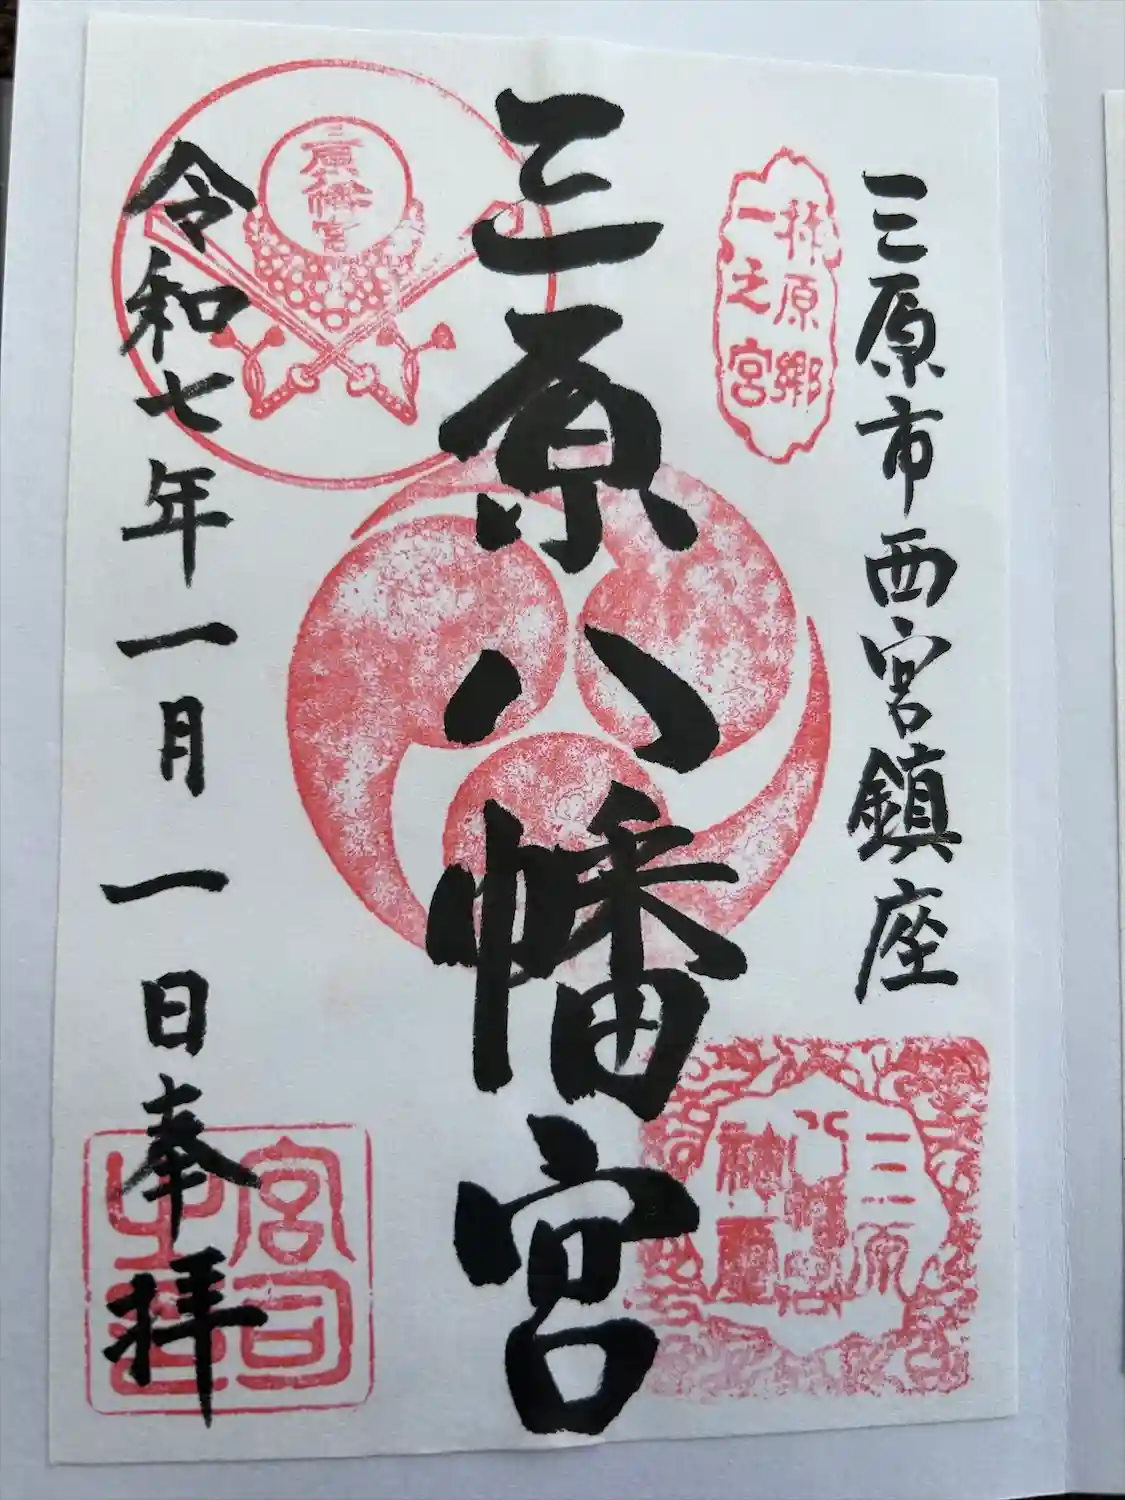 三原市西宮鎮座
柞原郷
一之宮
三原八幡宮
三原八幡宮
令和七年一月一日奉拝
三原
八幡宮
神璽
宮司
之